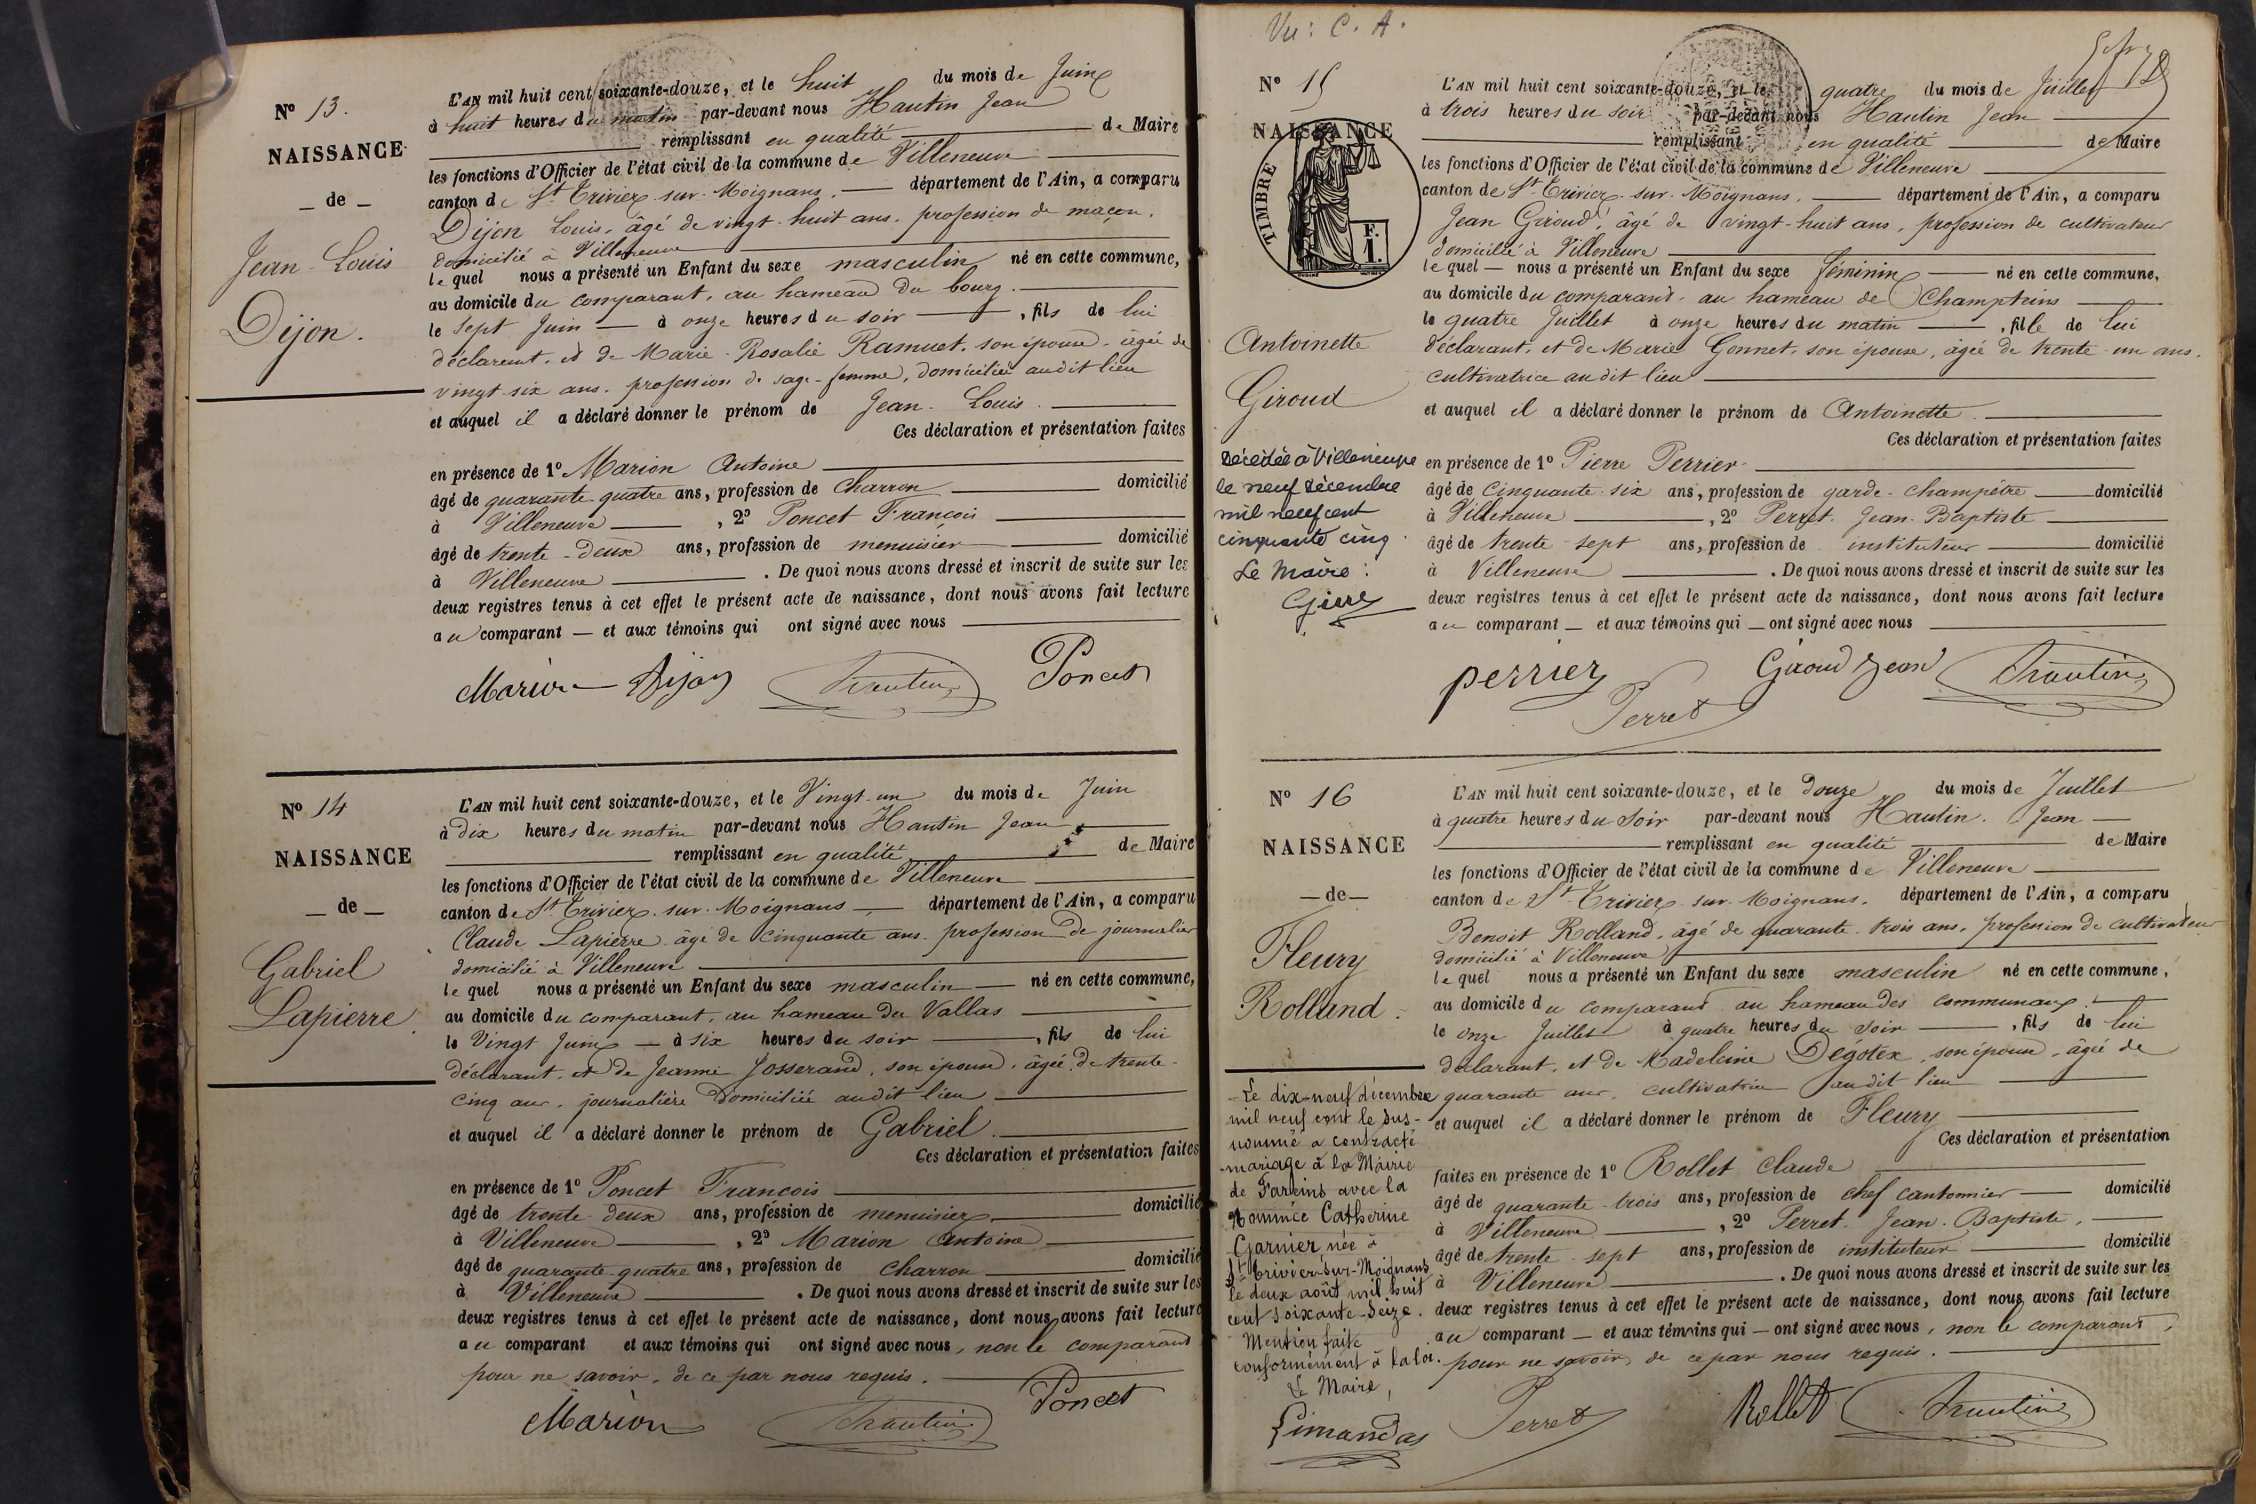 N° 13.
NAISSANCE
— de —
Jean-Louis
Dijon.
L'AN mil huit cent soixante-douze, et le huit du mois de Juin
à huit heures du matin par-devant nous Hautin Jean
remplissant en qualité de Maire
les fonctions d'Officier de l'état civil de la commune de Villeneuve
canton de St Trivier-sur-Moignans. département de l'Ain, a comparu
Dijon Louis, âgé de vingt-huit ans, profession de maçon,
domicilié à Villeneuve
lequel nous a présenté un Enfant du sexe masculin né en cette commune,
au domicile du comparant, au hameau du bourg.
le sept Juin — à onze heures du soir —, fils de lui
déclarant, et de Marie-Rosalie Ramuet, son épouse, âgée de
vingt-six ans, profession de sage-femme, domiciliée audit lieu
et auquel il a déclaré donner le prénom de Jean-Louis.
Ces déclaration et présentation faites
en présence de 1° Marion Antoine
âgé de quarante-quatre ans, profession de charron domicilié
à Villeneuve —, 2° Poncet François
âgé de trente-deux ans, profession de menuisier domicilié
à Villeneuve — . De quoi nous avons dressé et inscrit de suite sur les
deux registres tenus à cet effet le présent acte de naissance, dont nous avons fait lecture
au comparant — et aux témoins qui ont signé avec nous
Marion Dijon Hautin Poncet
N° 14
NAISSANCE
— de —
Gabriel
Lapierre.
L'AN mil huit cent soixante-douze, et le Vingt-un du mois de Juin
à dix heures du matin par-devant nous Hautin Jean
remplissant en qualité de Maire
les fonctions d'Officier de l'état civil de la commune de Villeneuve
canton de St Trivier-sur-Moignans — département de l'Ain, a comparu
Claude Lapierre âgé de cinquante ans, profession de journalier
domicilié à Villeneuve
lequel nous a présenté un Enfant du sexe masculin — né en cette commune,
au domicile du comparant, au hameau du Vallas
le Vingt Juin — à six heures du soir —, fils de lui
déclarant, et de Jeanne Josserand, son épouse, âgée de trente-
cinq ans, journalière domiciliée audit lieu
et auquel il a déclaré donner le prénom de Gabriel.
Ces déclaration et présentation faites
en présence de 1° Poncet François
âgé de trente-deux ans, profession de menuisier domicilié
à Villeneuve —, 2° Marion Antoine
âgé de quarante-quatre ans, profession de charron domicilié
à Villeneuve — . De quoi nous avons dressé et inscrit de suite sur les
deux registres tenus à cet effet le présent acte de naissance, dont nous avons fait lecture
au comparant et aux témoins qui ont signé avec nous, non le comparant
pour ne savoir, de ce par nous requis.
Marion Hautin Poncet
Vu : C. A.
N° 15
NAISSANCE
TIMBRE
F.
1.
Antoinette
Giroud
Décédée à Villeneuve
le neuf décembre
mil neuf cent
cinquante cinq.
Le Maire :
L'AN mil huit cent soixante-douze, et le quatre du mois de Juillet
à trois heures du soir par-devant nous Hautin Jean
remplissant en qualité de Maire
les fonctions d'Officier de l'état civil de la commune de Villeneuve
canton de St Trivier-sur-Moignans. — département de l'Ain, a comparu
Jean Giroud, âgé de vingt-huit ans, profession de cultivateur
domicilié à Villeneuve
lequel — nous a présenté un Enfant du sexe féminin — né en cette commune,
au domicile du comparant, au hameau de Champteins
le quatre Juillet à onze heures du matin —, fille de lui
déclarant, et de Marie Gonnet, son épouse, âgée de trente-un ans,
cultivatrice audit lieu
et auquel il a déclaré donner le prénom de Antoinette
Ces déclaration et présentation faites
en présence de 1° Pierre Perrier
âgé de cinquante-six ans, profession de garde-champêtre — domicilié
à Villeneuve —, 2° Perret Jean-Baptiste
âgé de trente-sept ans, profession de instituteur — domicilié
à Villeneuve — . De quoi nous avons dressé et inscrit de suite sur les
deux registres tenus à cet effet le présent acte de naissance, dont nous avons fait lecture
au comparant — et aux témoins qui — ont signé avec nous
perrier Giroud Jean Hautin
Perret
N° 16
NAISSANCE
— de —
Fleury
Rolland.
Le dix-neuf décembre
mil neuf cent le sus-
nommé a contracté
mariage à la Mairie
de Fareins avec la
Nommée Catherine
Garnier, née à
St Trivier-sur-Moignans
le deux août mil huit
cent soixante-seize.
Mention faite
conformément à la loi.
Le Maire,
Limandas
L'AN mil huit cent soixante-douze, et le douze du mois de Juillet
à quatre heures du soir par-devant nous Hautin Jean —
remplissant en qualité de Maire
les fonctions d'Officier de l'état civil de la commune de Villeneuve
canton de St Trivier-sur-Moignans. département de l'Ain, a comparu
Benoit Rolland, âgé de quarante-trois ans, profession de cultivateur
domicilié à Villeneuve
lequel nous a présenté un Enfant du sexe masculin né en cette commune,
au domicile du comparant au hameau des communaux.
le onze Juillet à quatre heures du soir —, fils de lui
déclarant, et de Madeleine Dégotex, son épouse, âgée de
quarante ans, cultivatrice audit lieu
et auquel il a déclaré donner le prénom de Fleury
Ces déclaration et présentation
faites en présence de 1° Rollet Claude
âgé de quarante-trois ans, profession de chef cantonnier — domicilié
à Villeneuve —, 2° Perret Jean-Baptiste,
âgé de trente-sept ans, profession de instituteur domicilié
à Villeneuve — . De quoi nous avons dressé et inscrit de suite sur les
deux registres tenus à cet effet le présent acte de naissance, dont nous avons fait lecture
au comparant — et aux témoins qui — ont signé avec nous, non le comparant,
pour ne savoir, de ce par nous requis.
Perret Rollet Hautin